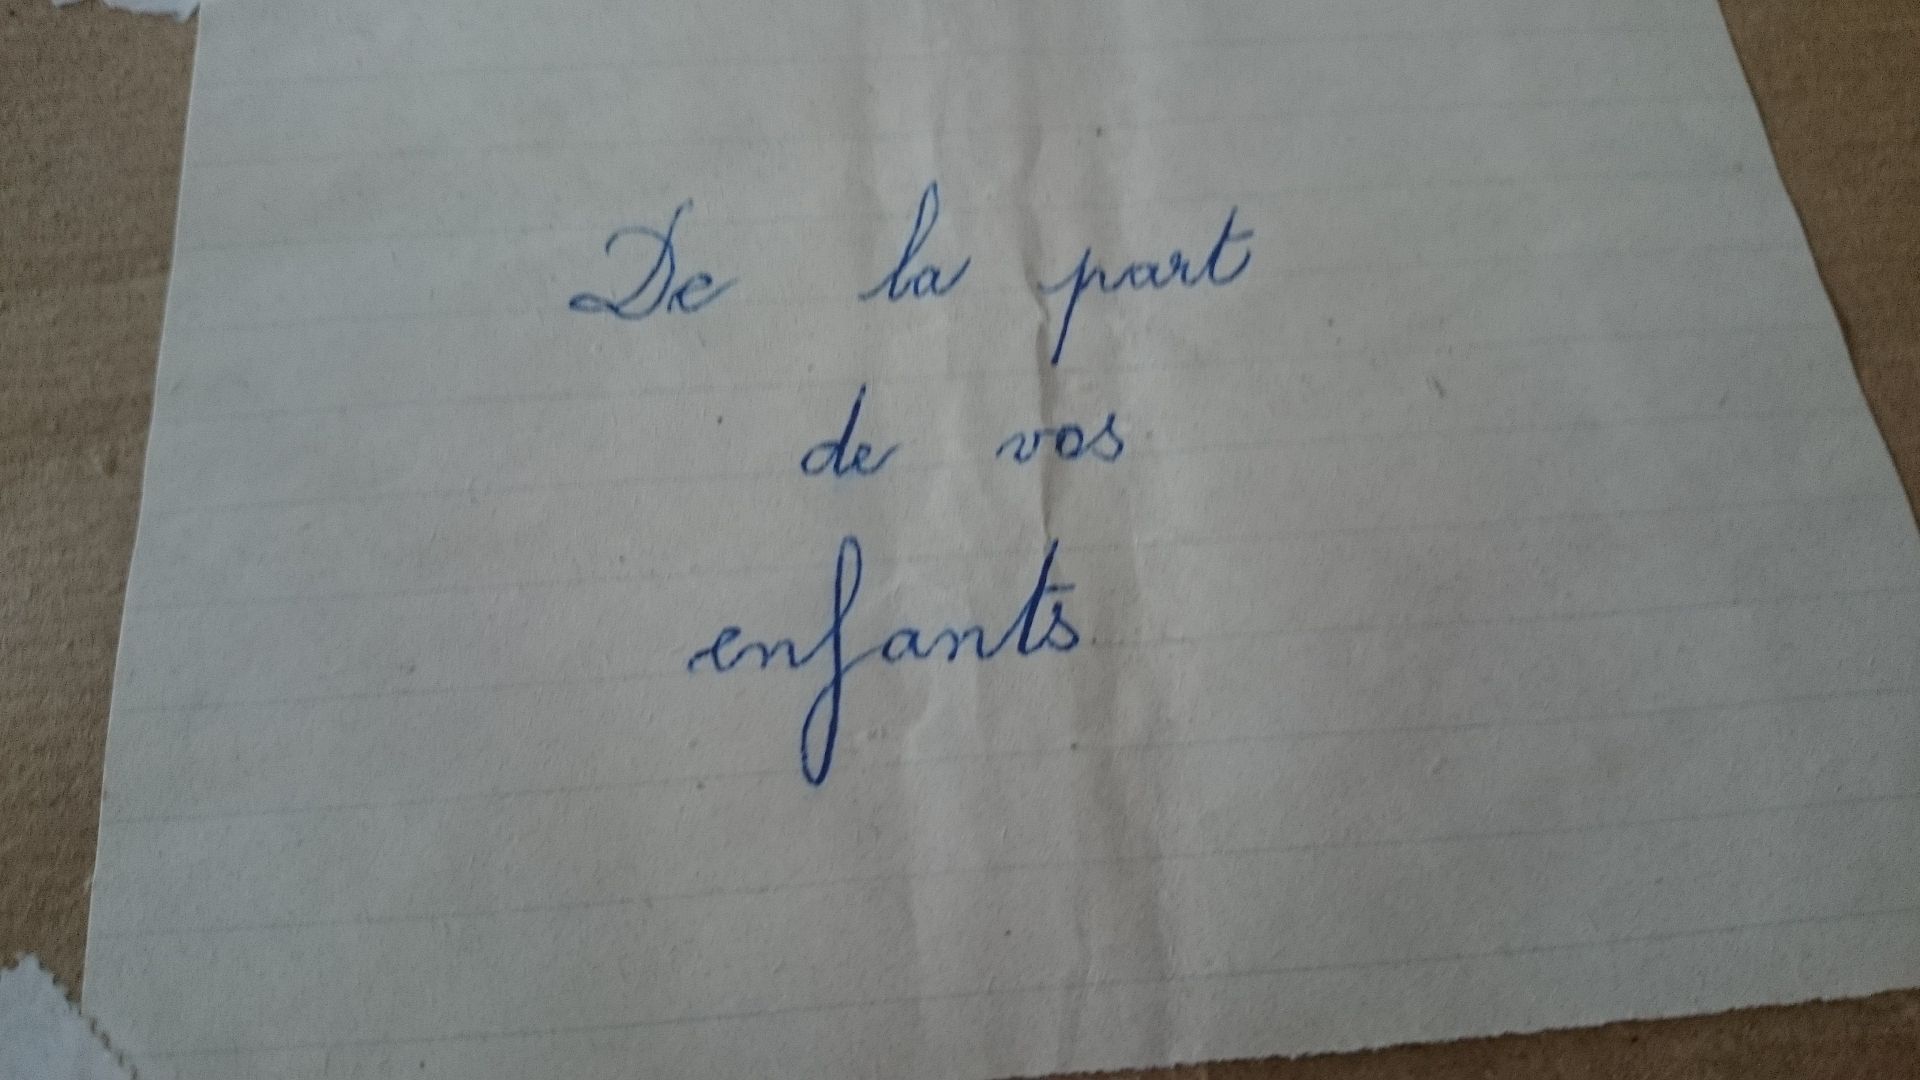 De la part
de vos
enfants